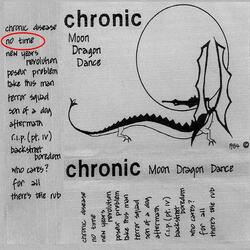 chronic disease
no time
new years
revolution
poseur problem
take this man
terror squad
son of a dog
aftermath
r.i.p. (pt. iv)
backstreet
boredom
who cares?
for all
there's the rub
chronic
Moon
Dragon
Dance
chronic Moon Dragon Dance
chronic disease
no time
new years
revolution
poseur problem
take this man
terror squad
son of a dog
aftermath
r.i.p. (pt. iv)
backstreet
boredom
who cares?
for all
there's the rub